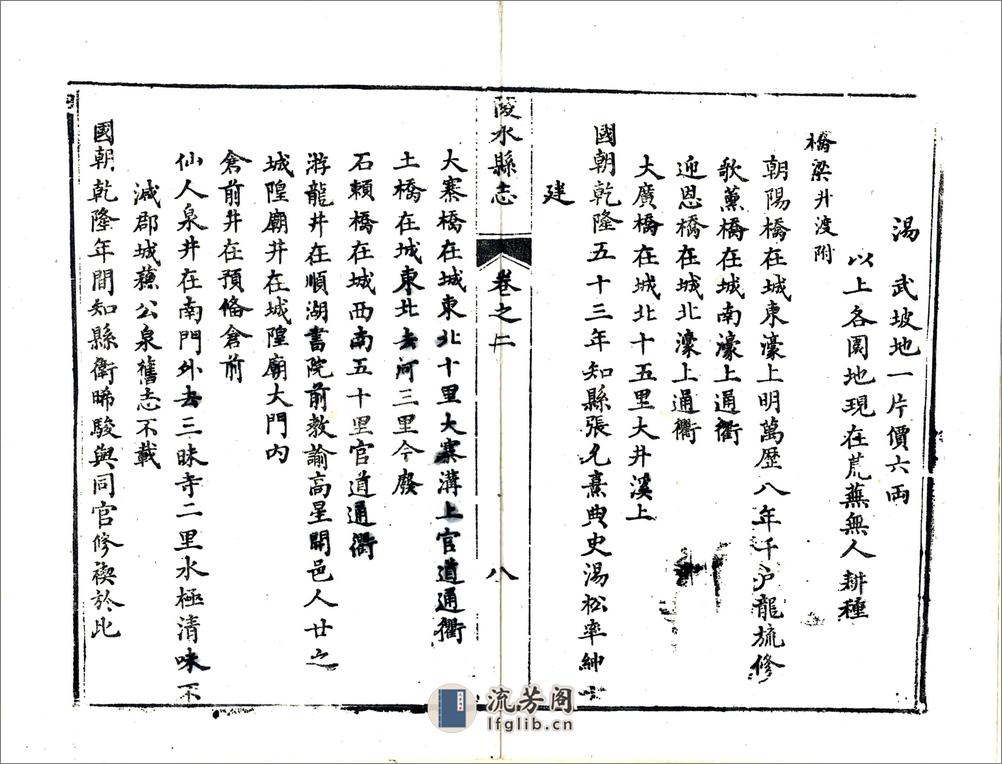 湯　武坡地一片價六両
以上各園地現在荒蕪無人耕種
橋梁井渡附
朝陽橋在城東濠上明萬歷八年千户龍旒修
歌薰橋在城南濠上通衢
迎恩橋在城北濠上通衢
大廣橋在城北十五里大井溪上
國朝乾隆五十三年知縣張允熹典史湯松率紳士
建
陵水縣志
卷之二
八
大寨橋在城東北十里大寨溝上官道通衢
土橋在城東北去河三里今廢
石賴橋在城西南五十里官道通衢
游龍井在順湖書院前教諭高星開邑人廿之
城隍廟井在城隍廟大門內
倉前井在預俻倉前
仙人泉井在南門外去三昧寺二里水極清味不
減郡城蘇公泉舊志不載
國朝乾隆年間知縣衞晞駿與同官修禊於此
流芳阁
lfglib.cn